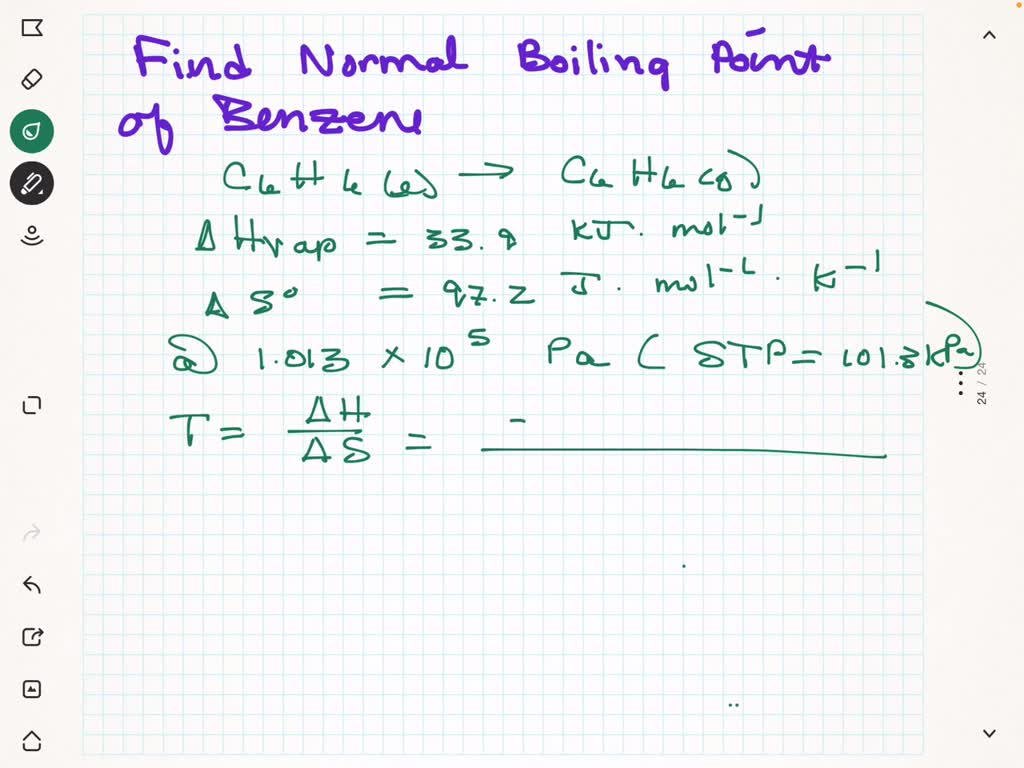 Find Normal Boiling Point
of Benzene
C6H6(l) → C6H6(g)
ΔHvap = 33.9 kJ. mol-1
ΔS° = 97.2 J. mol-1. K-1
@ 1.013 × 10^5 Pa (STP = 101.3kPa)
T = ΔH/ΔS =
24 / 24